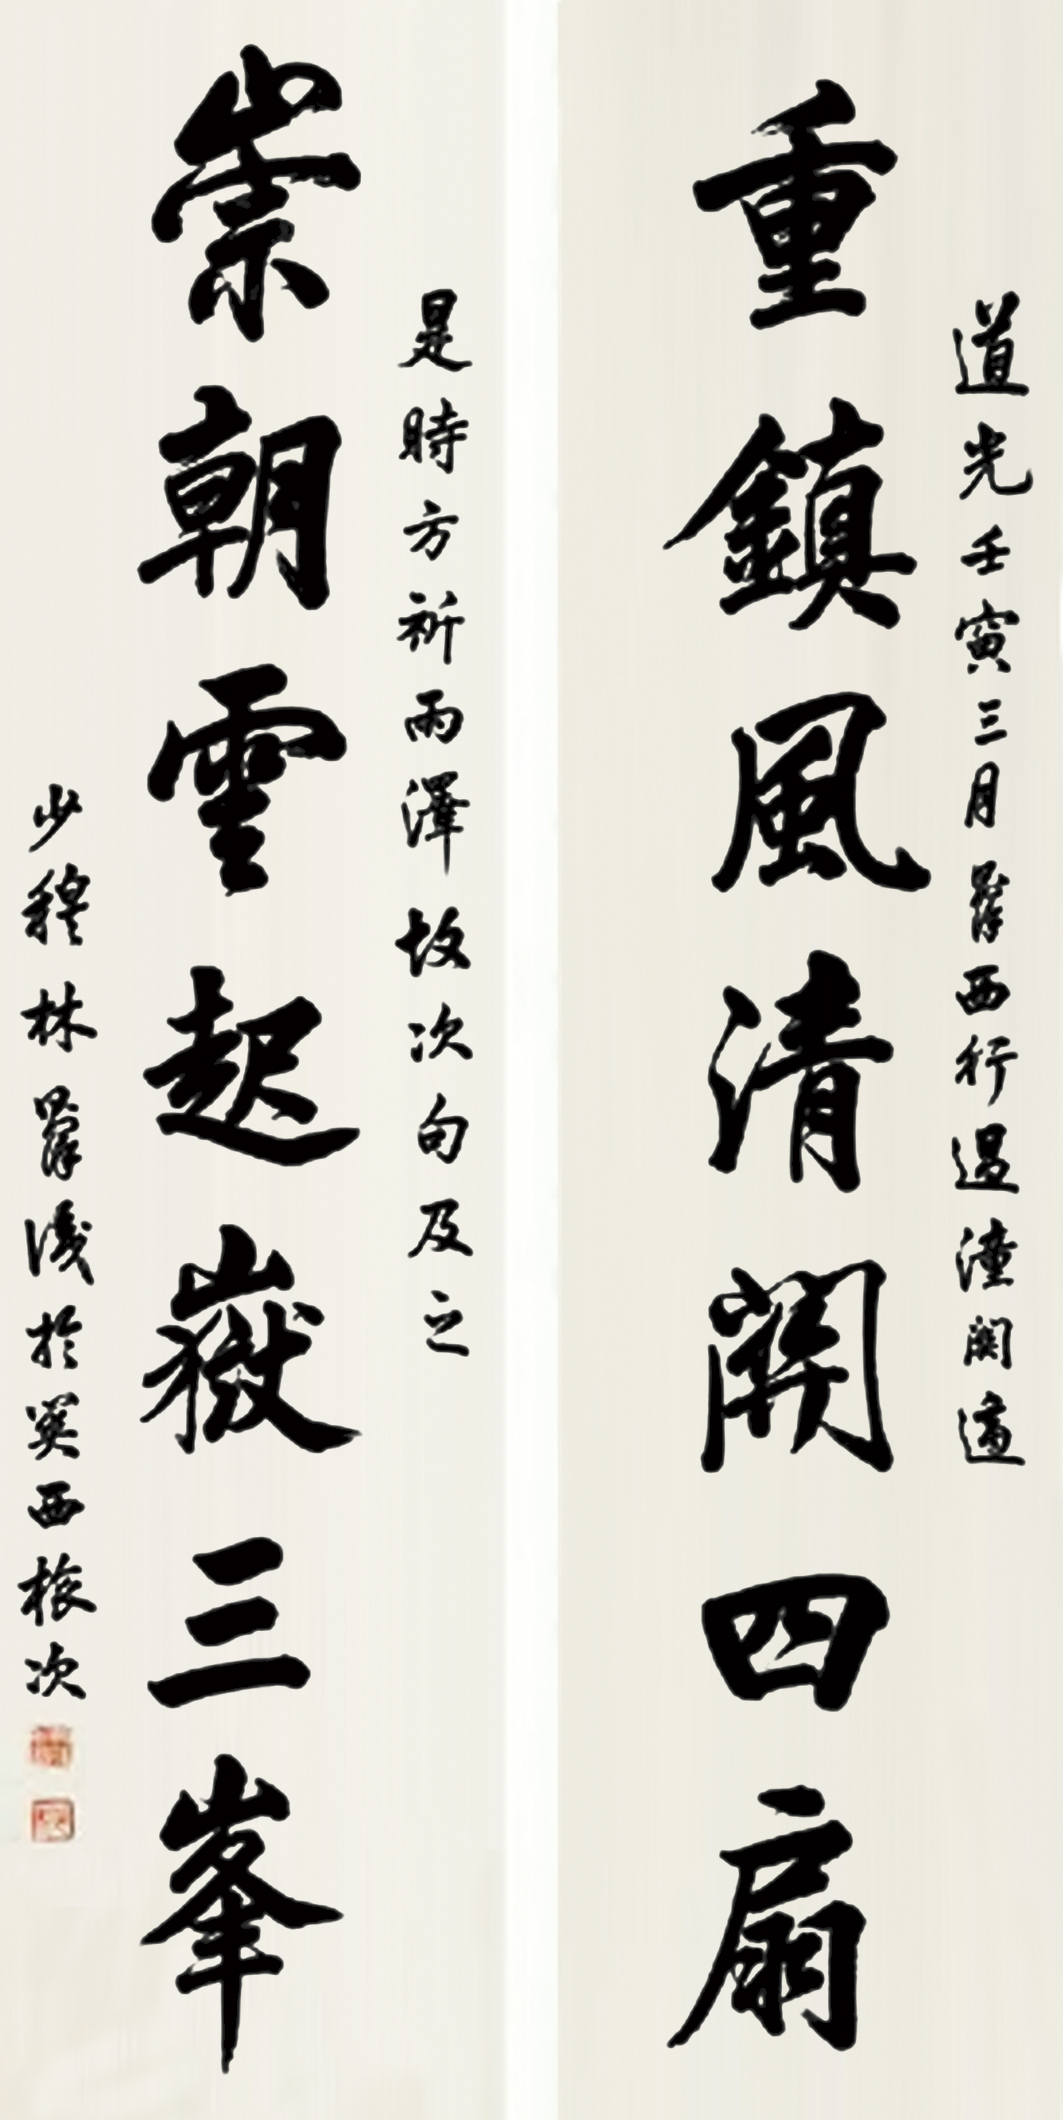 道光壬寅三月羅西行過潼關適
重鎮風清關四扇
是時方祈雨澤故次句及之
崇朝雲起嶽三峯
少穆林羅識於奚西旅次